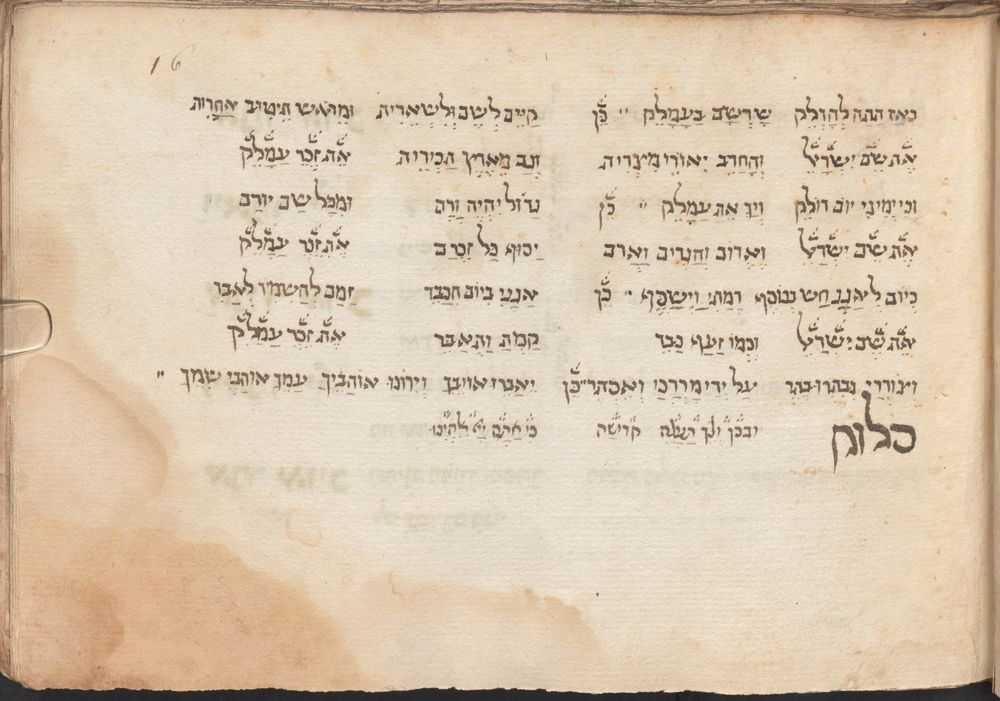 16
כאז תתה להדלק שרשם בעמלק " כן קיים לשם ולשארית ומראש תיטוב אחרית
את שם ישראל והחרב יאורי מצרית וגב מארץ תכרית את זכר עמלק
וכיימיני יום דולק ויך את עמלק " כן גדול יהיה ורם ומכל שם יורם
את שם ישראל ואדום וחגרים וארם יכוף כל זכרם את זכר עמלק
כיום לאגג חש נוסף רמתי וישסף " כן אגגי ביום הכבד זמם להשמיד לאבד
את שם ישראל וכמו זעף כבד קמת ותאבד את זכר עמלק
וצוררי נבהר ובתר על ידי מרדכי ואסתר " כן יאבדו אויביך וירונו אוהביך עמך אוהבי שמך "
סלוק ובכן ולך תעלה קדושה כי אתה אלהינו